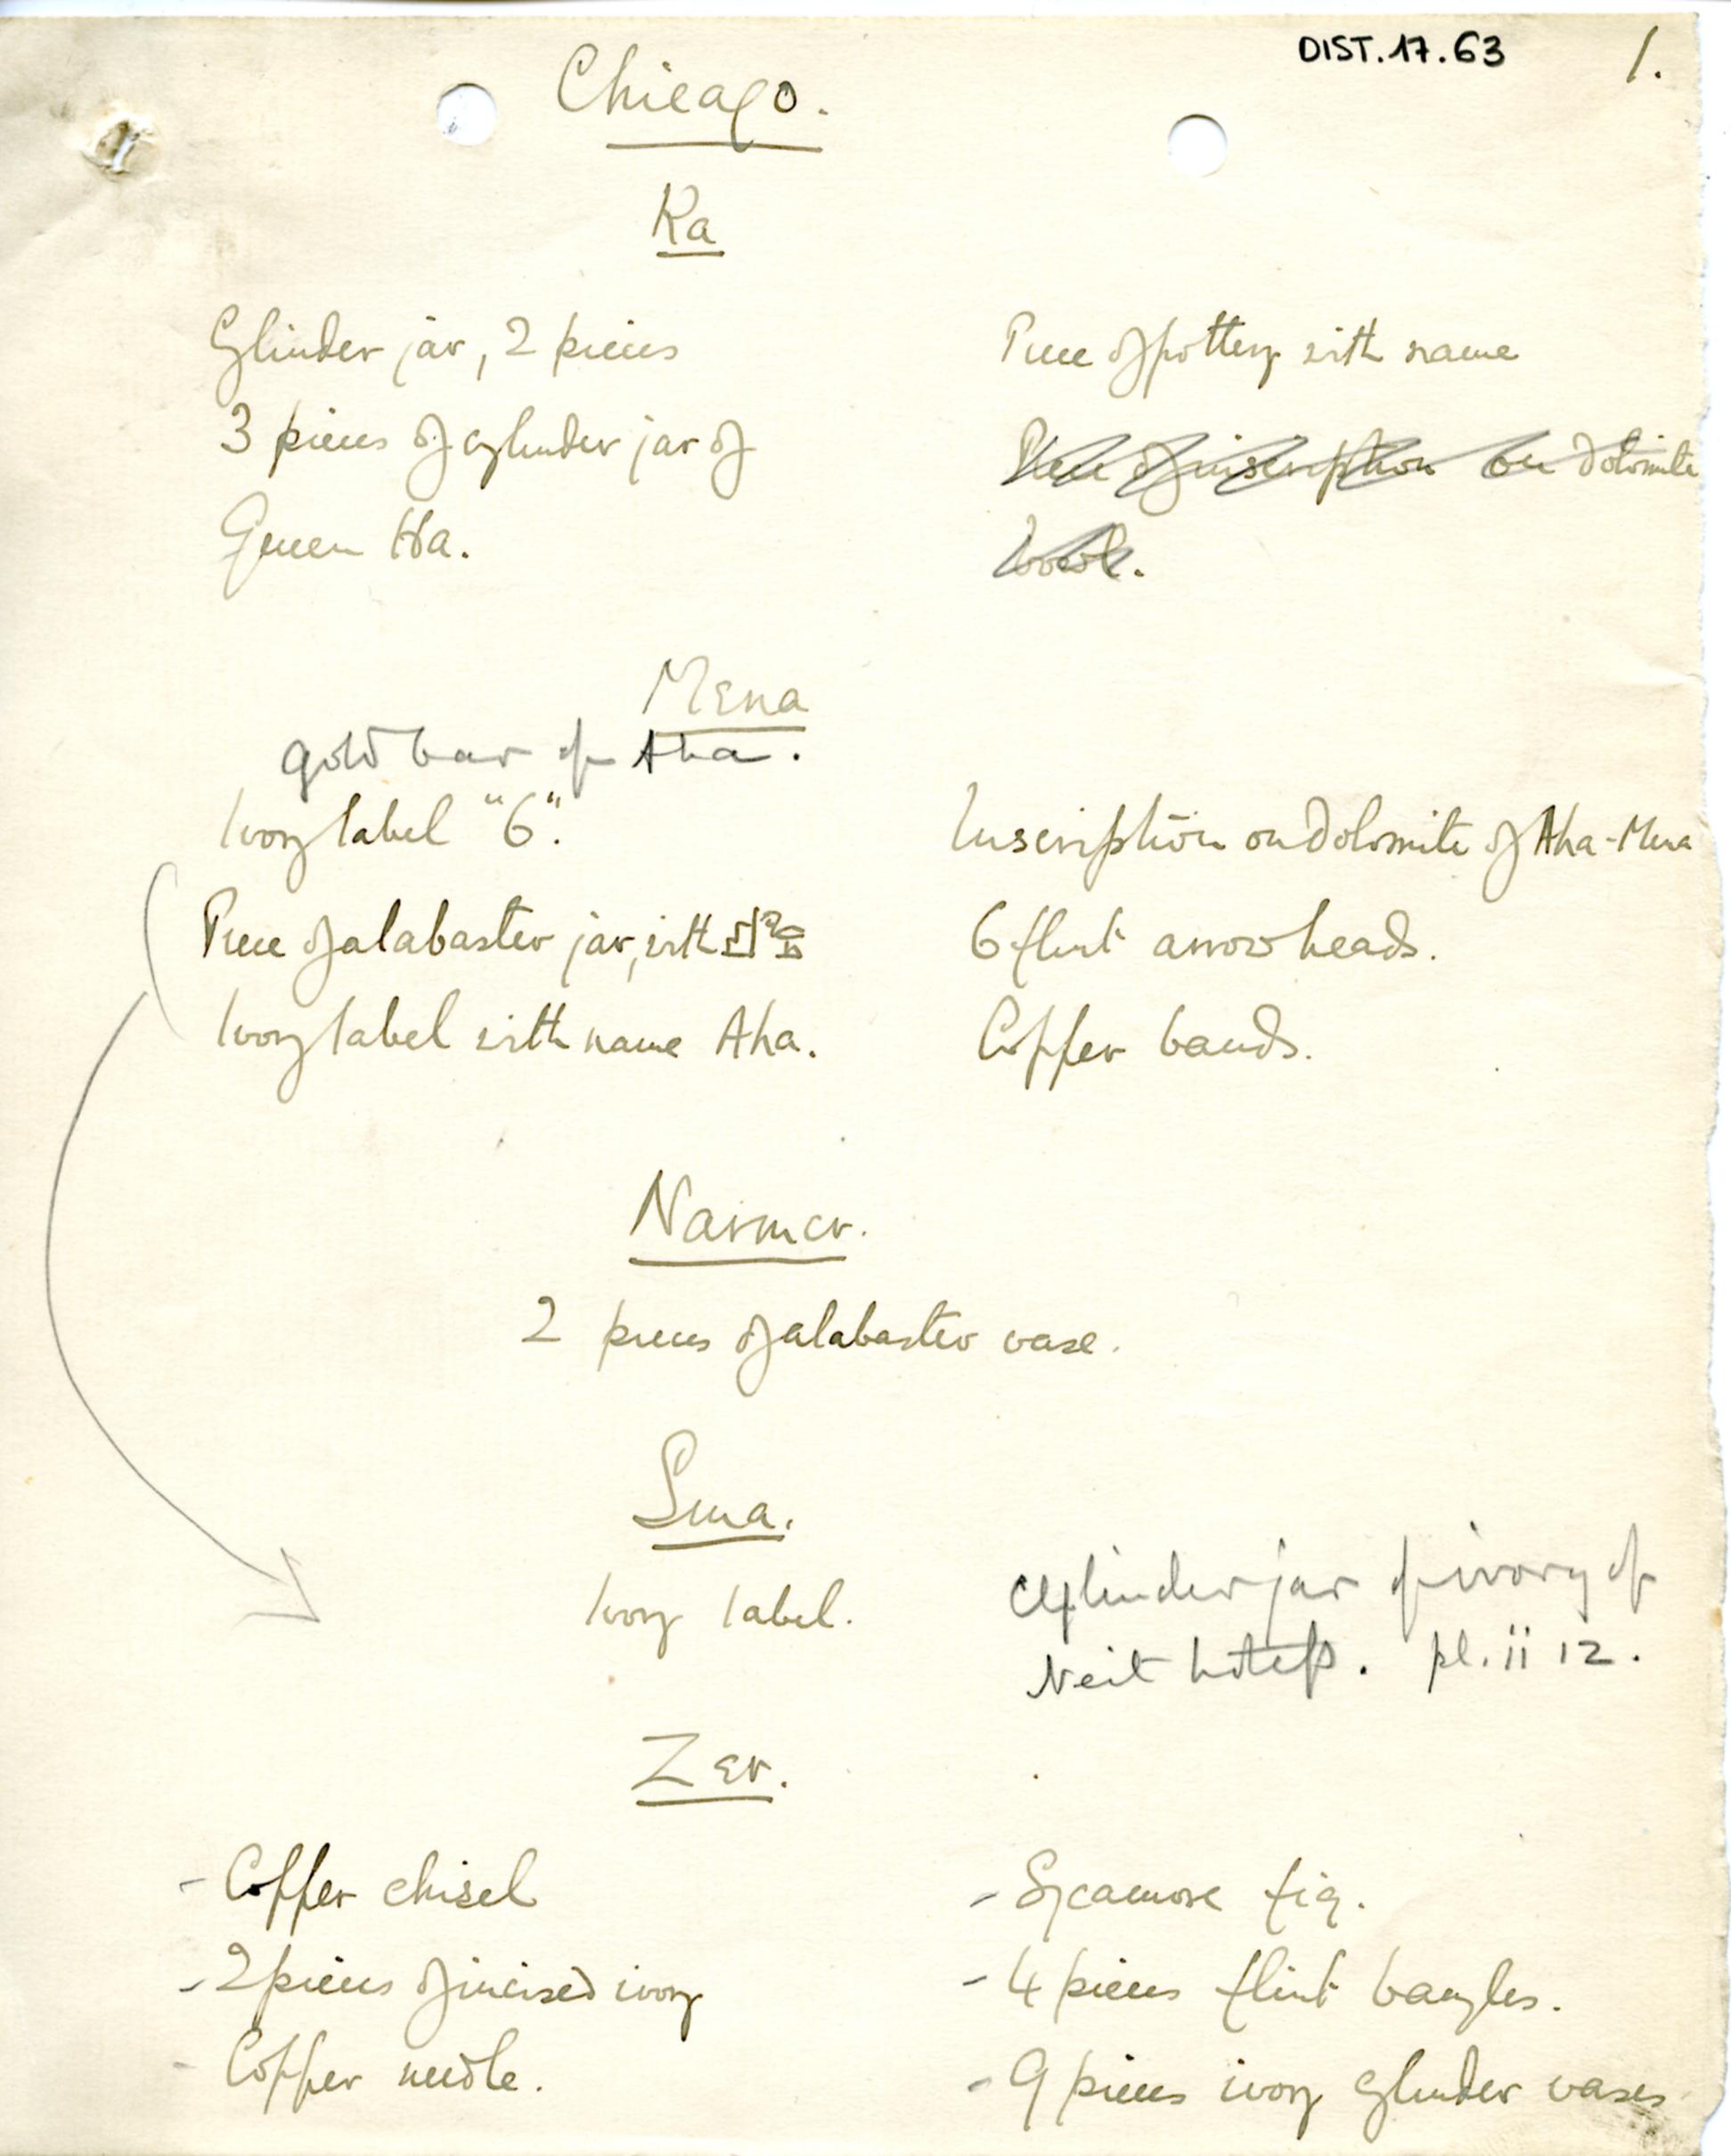 DIST. 17. 63
1.
Chicago.
Ka
Cylinder jar, 2 pieces
3 pieces of cylinder jar of
Queen Ha.
Piece of pottery with name
Piece of inscription on dolomite
bowl.
Mena
gold bar of Aha.
Ivory label "6".
Piece of alabaster jar, with
Ivory label with name Aha.
Inscription on dolomite of Aha-Mena
6 flint arrowheads.
Copper bands.
Narmer.
2 pieces of alabaster vase.
Sma.
Ivory label.
Cylinder jar of ivory of
Neit hotep. pl. ii 12.
Zer.
- Copper chisel
- 2 pieces of incised ivory
- Copper needle.
- Sycamore fig.
- 4 pieces flint bangles.
- 9 pieces ivory cylinder vases